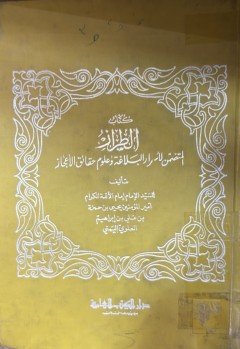 كتاب
الطراز
المتضمن لأسرار البلاغة وعلوم حقائق الإعجاز
تأليف
السيد الإمام إمام الأئمة الكرام
أمير المؤمنين يحيى بن حمزة
بن علي بن إبراهيم
العلوي اليمني
دار الكتب العلمية